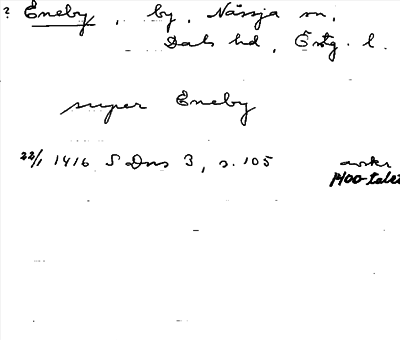 ? Eneby, by, Nässja sn,
Dals hd, Östg. l.
super Eneby
22/1 1416 S Dns 3, s. 105 avskr
1400-talet